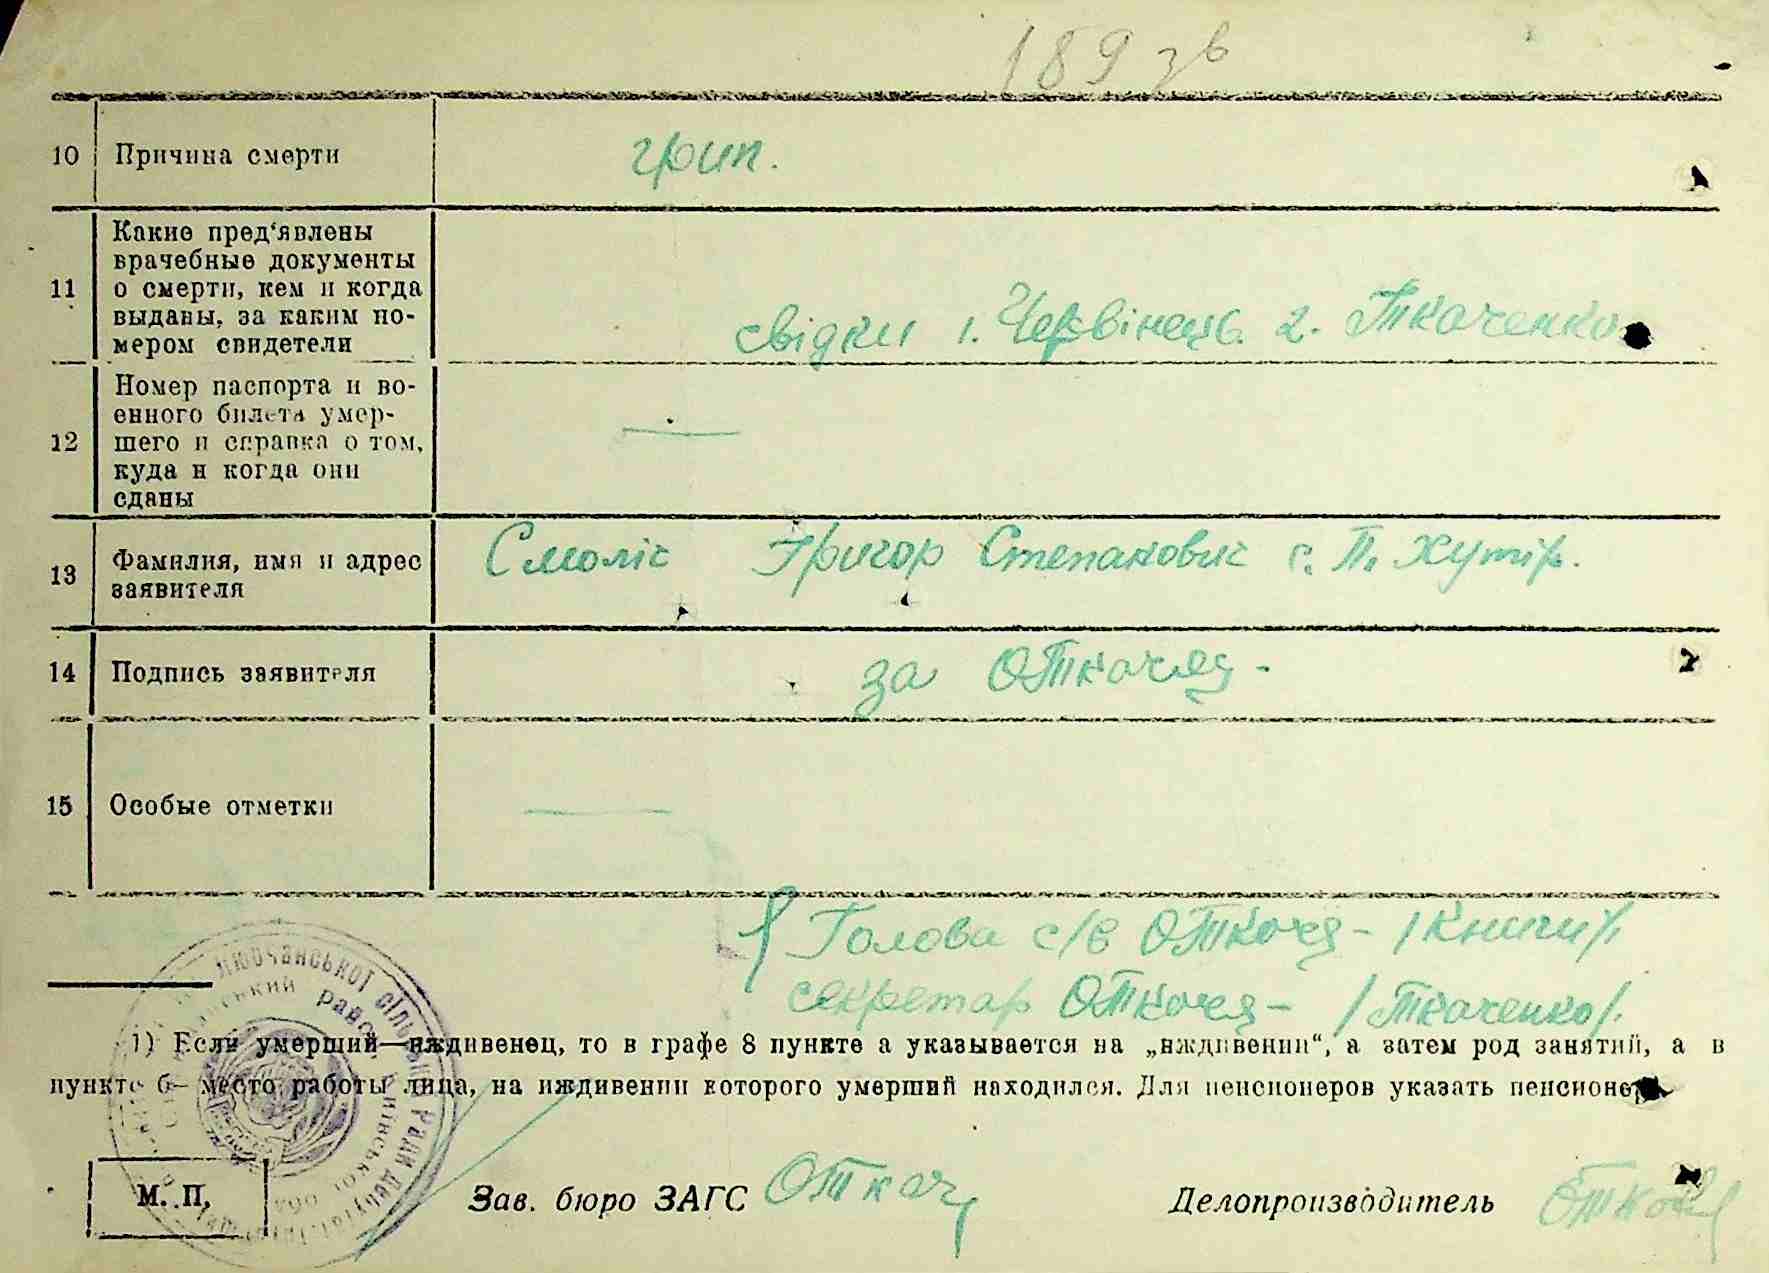 189 зв
10 Причина смерти грип.
11 Какие пред'явлены
врачебные документы
о смерти, кем и когда
выданы, за каким но-
мером свидетели свідки 1. Червінець 2. Ткаченко
12 Номер паспорта и во-
енного билета умер-
шего и справка о том,
куда и когда они
сданы —
13 Фамилия, имя и адрес
заявителя Смоліс Григор Степанович с. П. Хутір.
14 Подпись заявителя за ОТкач
15 Особые отметки —
Голова с/в ОТкач- /Книги/
секретар ОТкач- /Ткаченко/.
1) Если умерший—иждивенец, то в графе 8 пункте а указывается на „иждивении", а затем род занятий, а в
пункте б— место работы лица, на иждивении которого умерший находился. Для пенсионеров указать пенсионер
сільської Ради депутат
район Київської обл
М. П. Зав. бюро ЗАГС ОТкач Делопроизводитель ОТкач